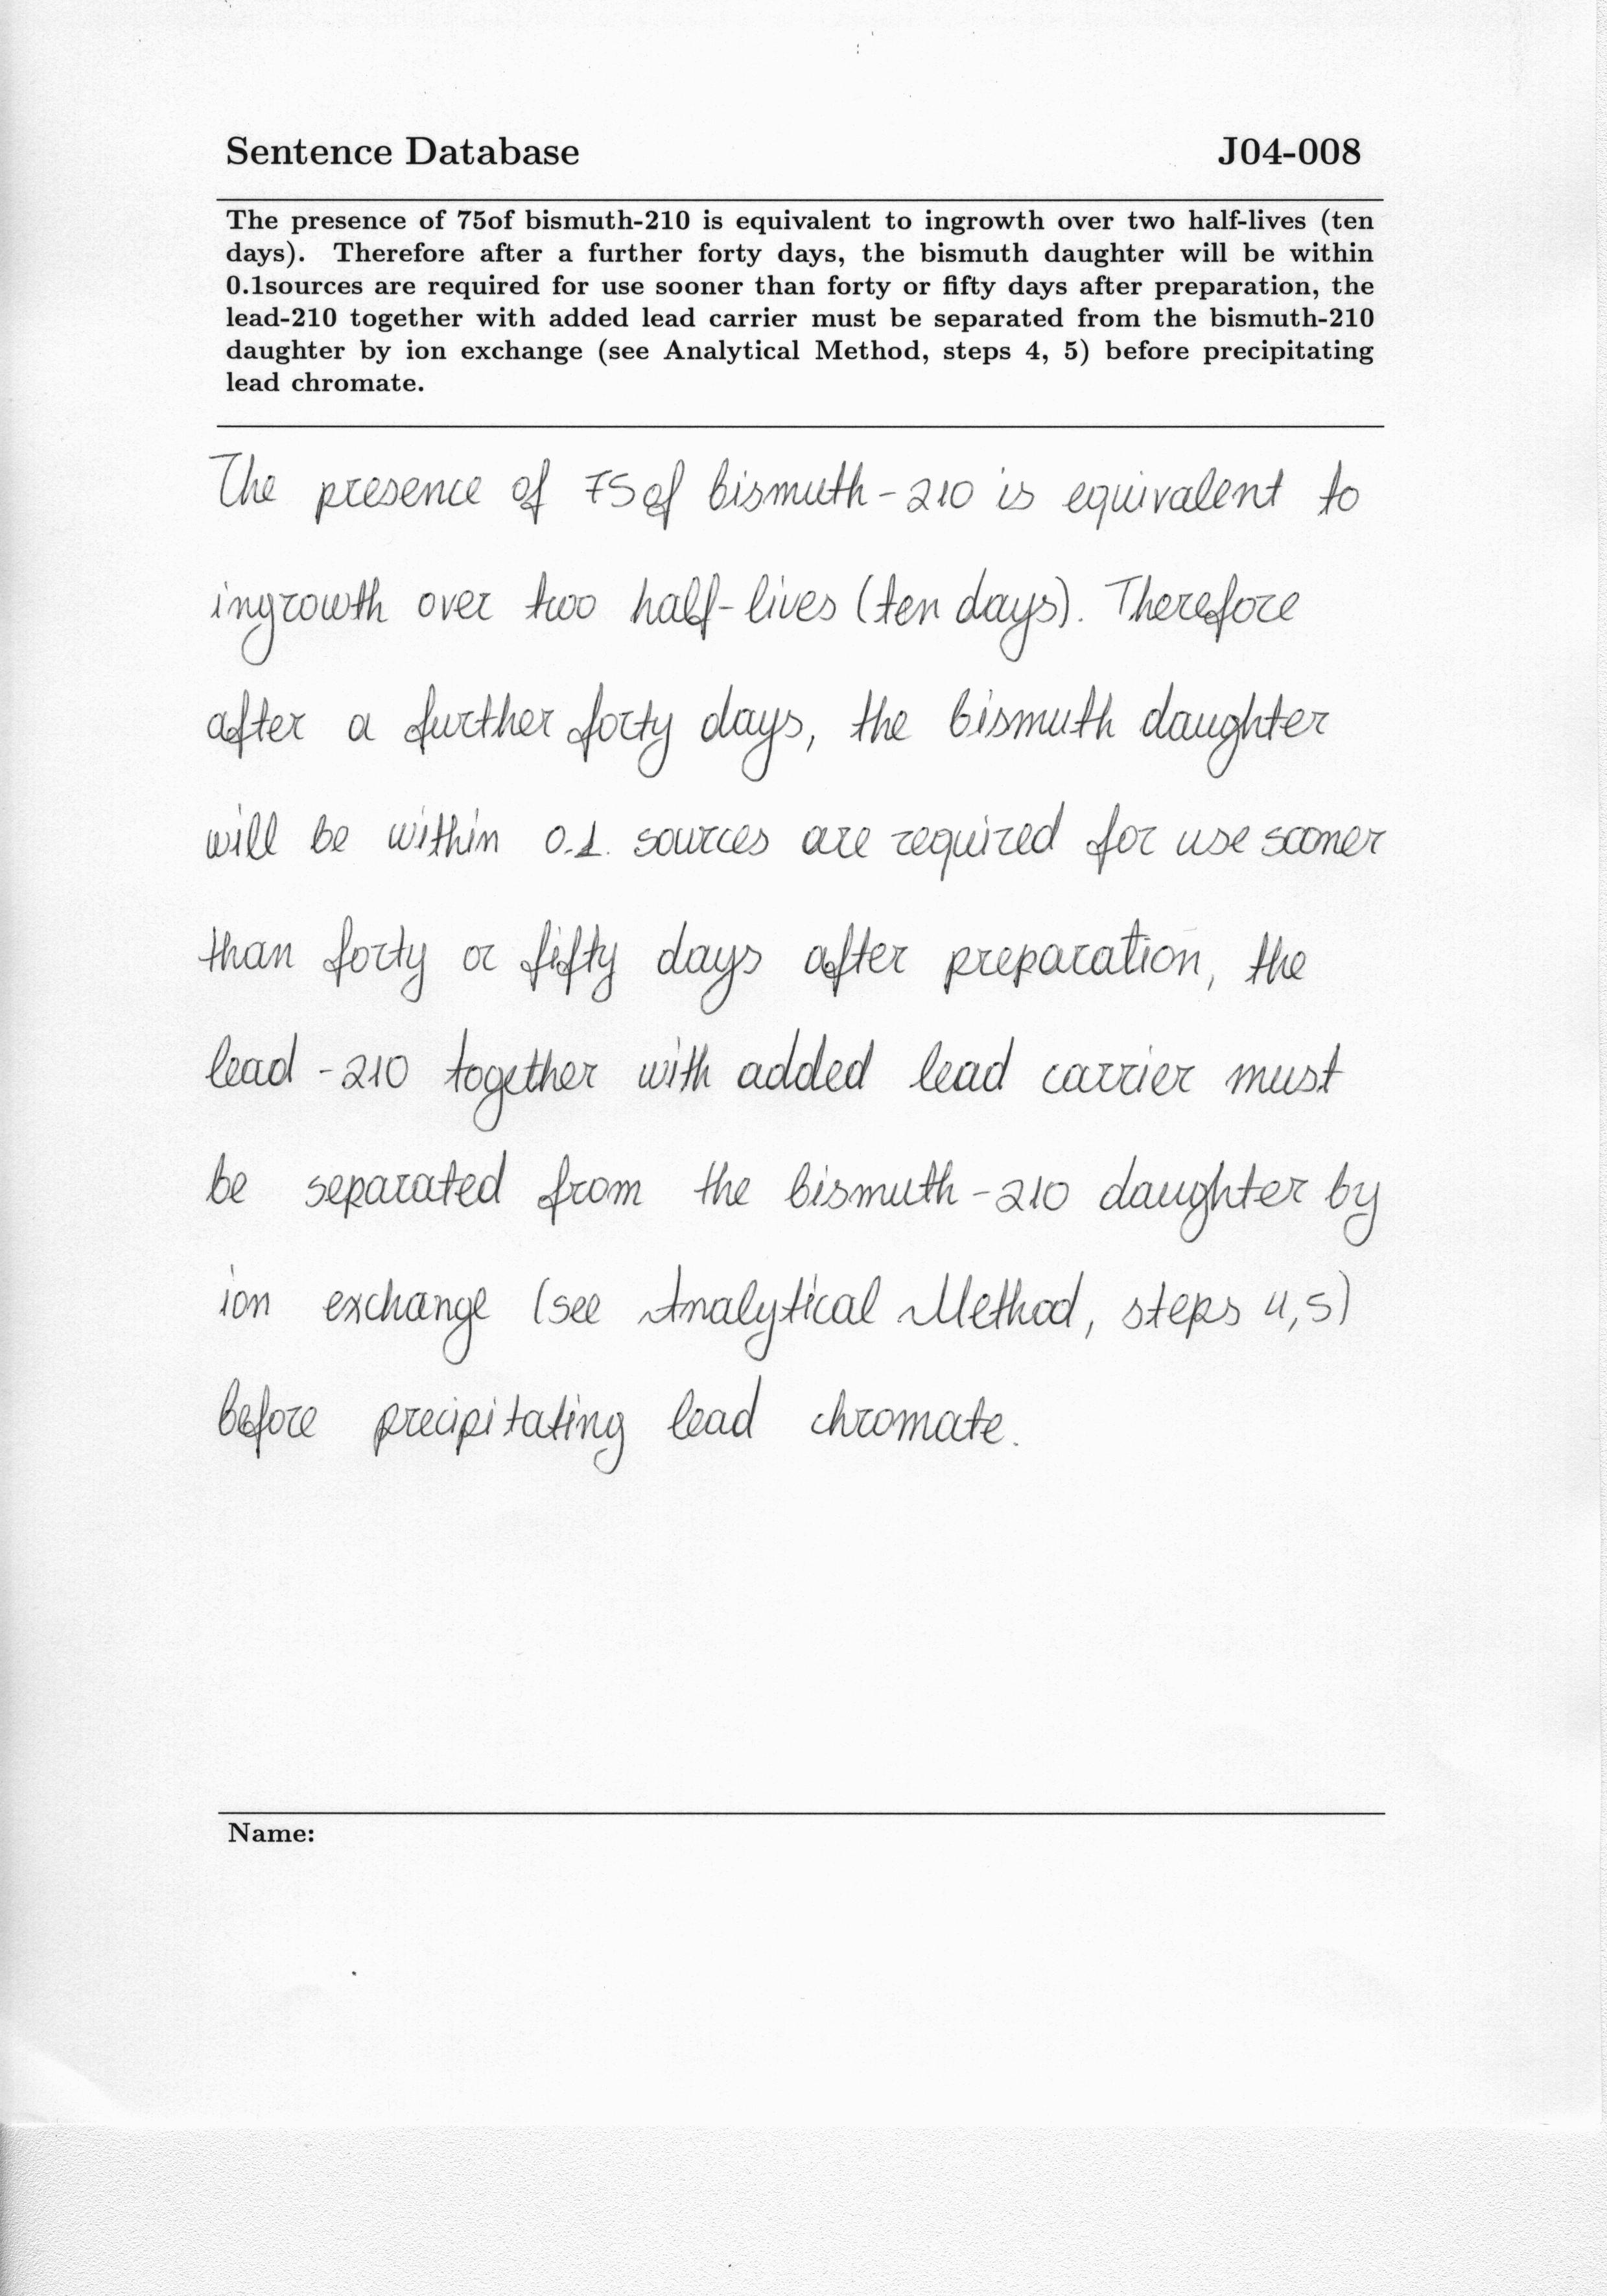 Sentence Database J04-008
The presence of 75of bismuth-210 is equivalent to ingrowth over two half-lives (ten
days). Therefore after a further forty days, the bismuth daughter will be within
0.1sources are required for use sooner than forty or fifty days after preparation, the
lead-210 together with added lead carrier must be separated from the bismuth-210
daughter by ion exchange (see Analytical Method, steps 4, 5) before precipitating
lead chromate.
The presence of 75of bismuth-210 is equivalent to
ingrowth over two half-lives (ten days). Therefore
after a further forty days, the bismuth daughter
will be within 0.1. sources are required for use sooner
than forty or fifty days after preparation, the
lead-210 together with added lead carrier must
be separated from the bismuth-210 daughter by
ion exchange (see Analytical Method, steps 4,5)
before precipitating lead chromate.
Name: